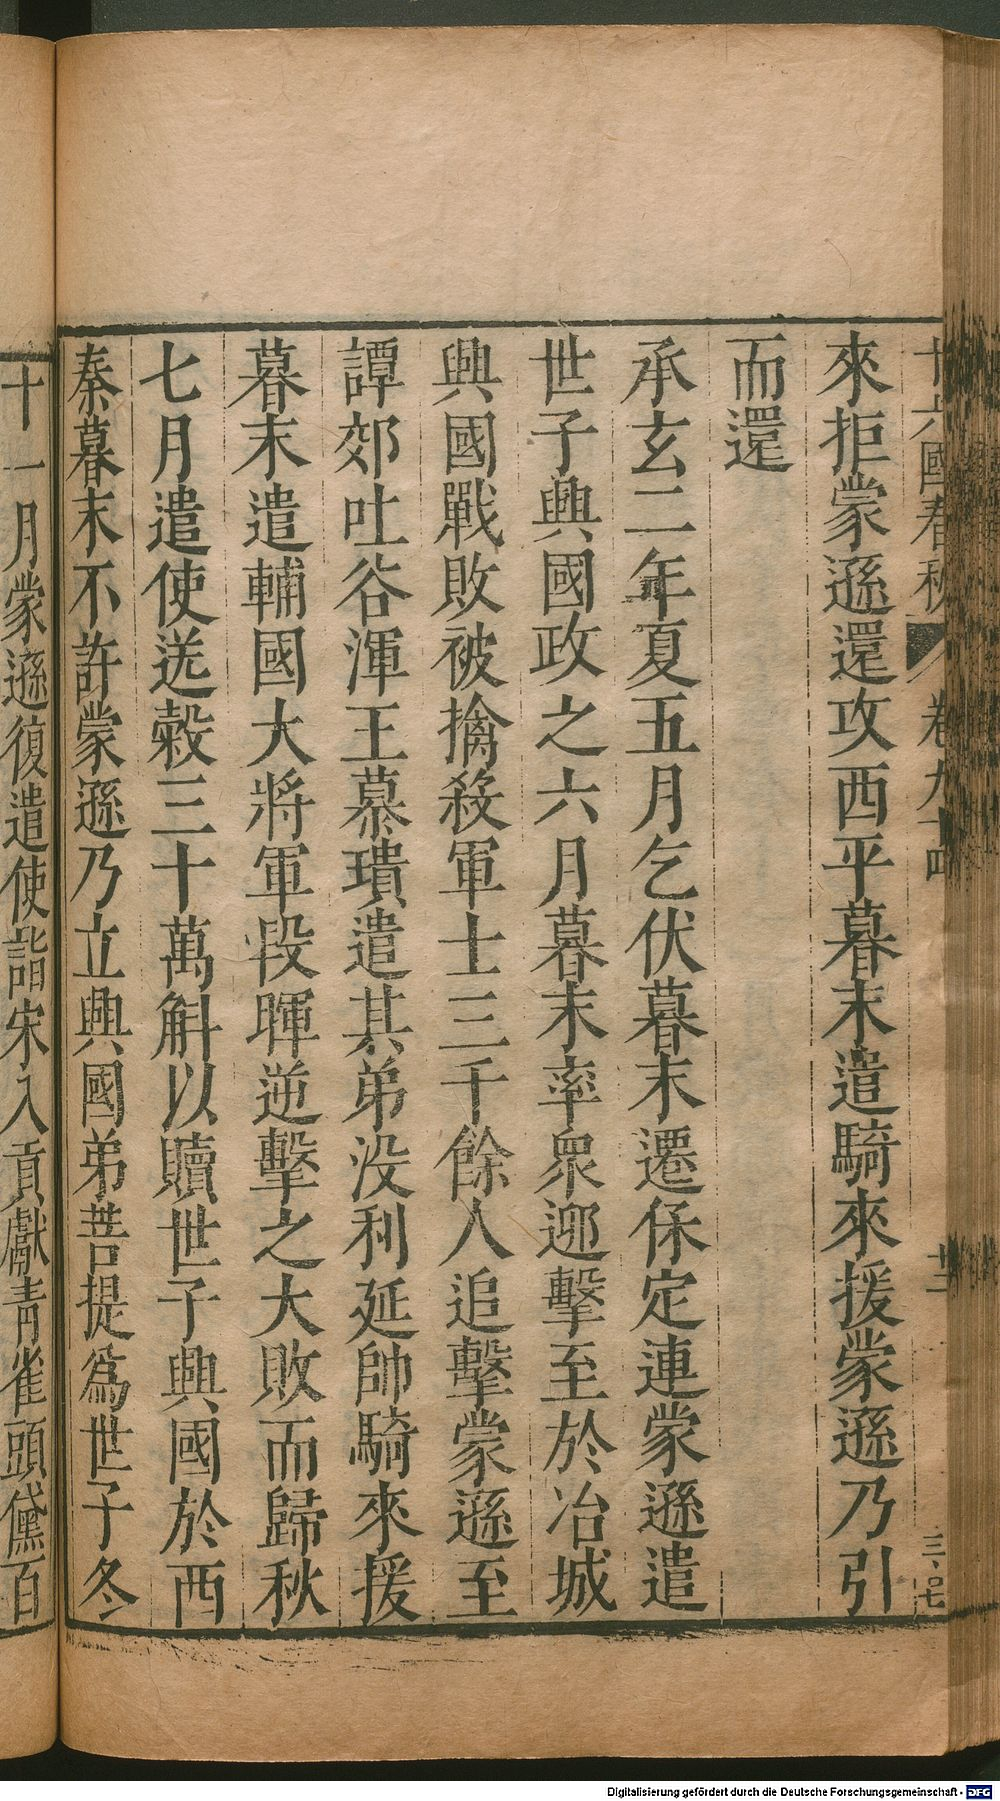 十六國春秋 卷九十四 廿二 三·〇七
來拒蒙遜還攻西平暮末遣騎來援蒙遜乃引
而還
承玄二年夏五月乞伏暮末遷保定連蒙遜遣
世子興國政之六月暮末率衆迎擊至於冶城
興國戰敗被擒殺軍士三千餘人追擊蒙遜至
譚郊吐谷渾王慕璝遣其弟沒利延帥騎來援
暮末遣輔國大將軍段暉逆擊之大敗而歸秋
七月遣使送榖三十萬斛以贖世子興國於西
秦暮末不許蒙遜乃立興國弟菩提爲世子冬
十一月蒙遜復遣使詣宋入貢獻青雀頭黛百
Digitalisierung gefördert durch die Deutsche Forschungsgemeinschaft - DFG